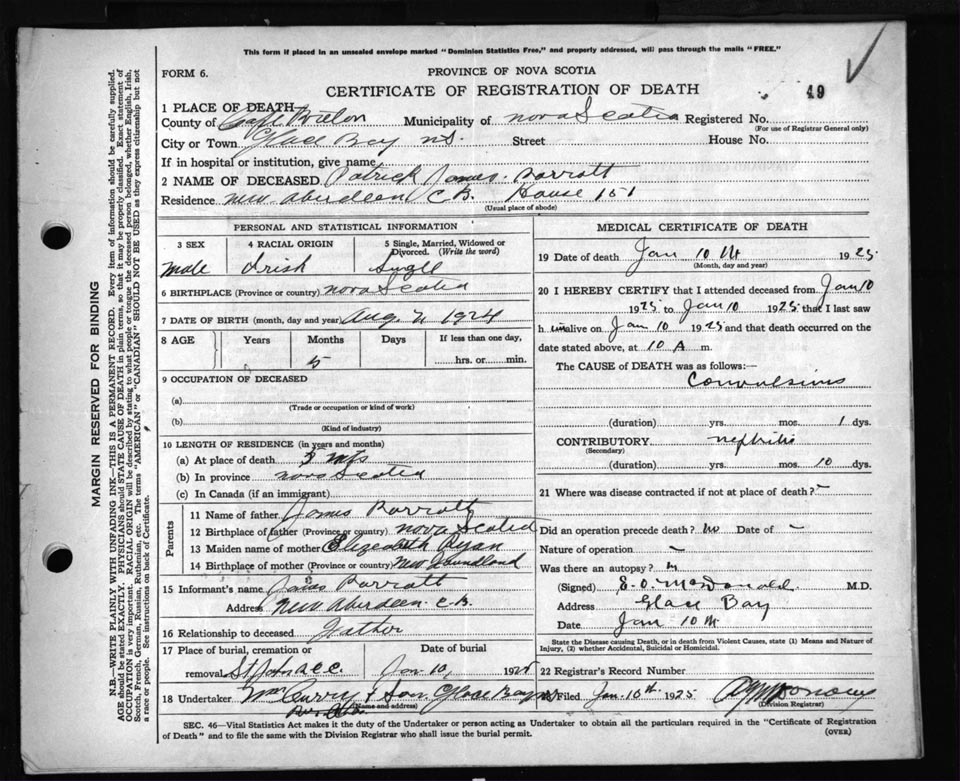 This form if placed in an unsealed envelope marked "Dominion Statistics Free," and properly addressed, will pass through the mails "FREE."
FORM 6.
PROVINCE OF NOVA SCOTIA
CERTIFICATE OF REGISTRATION OF DEATH
49
1 PLACE OF DEATH
County of Cape Breton Municipality of Nova Scotia Registered No.
(For use of Registrar General only)
City or Town Glace Bay N.S. Street House No.
If in hospital or institution, give name
2 NAME OF DECEASED Patrick James Parrott
Residence New Aberdeen C.B. House 151
(Usual place of abode)
PERSONAL AND STATISTICAL INFORMATION
3 SEX 4 RACIAL ORIGIN 5 Single, Married, Widowed or Divorced. (Write the word)
Male Irish Single
6 BIRTHPLACE (Province or country) Nova Scotia
7 DATE OF BIRTH (month, day and year) Aug 1924
8 AGE Years Months Days If less than one day,
5 hrs. or min.
9 OCCUPATION OF DECEASED
(a)
(Trade or occupation or kind of work)
(b)
(Kind of industry)
10 LENGTH OF RESIDENCE (in years and months)
(a) At place of death mts
(b) In province Nova Scotia
(c) In Canada (if an immigrant)
Parents
11 Name of father James Parrott
12 Birthplace of father (Province or country) Nova Scotia
13 Maiden name of mother Elizabeth Ryan
14 Birthplace of mother (Province or country) Newfoundland
15 Informant's name James Parrott
Address New Aberdeen C.B.
16 Relationship to deceased Father
17 Place of burial, cremation or removal Date of burial
St Johns Jan 10, 1925
18 Undertaker Wm Curry & Son Glace Bay
(Name and address)
MEDICAL CERTIFICATE OF DEATH
19 Date of death Jan 10 th 1925
(Month, day and year)
20 I HEREBY CERTIFY that I attended deceased from Jan 10
1925 to Jan 10 1925 that I last saw
h im alive on Jan 10 1925 and that death occurred on
date stated above, at 10 A m.
The CAUSE of DEATH was as follows:—
Convulsions
(duration) yrs. mos. 1 dys.
CONTRIBUTORY nephritis
(Secondary)
(duration) yrs. mos. 10 dys.
21 Where was disease contracted if not at place of death? –
Did an operation precede death? no Date of –
Nature of operation –
Was there an autopsy?
(Signed) E.O. McDonald M.D.
Address Glace Bay
Date Jan 10 th
State the Disease causing Death, or in death from Violent Causes, state (1) Means and Nature of Injury, (2) whether Accidental, Suicidal or Homicidal.
22 Registrar's Record Number
Filed Jan. 10th 1925
(Division Registrar)
SEC. 46—Vital Statistics Act makes it the duty of the Undertaker or person acting as Undertaker to obtain all the particulars required in the "Certificate of Registration
of Death" and to file the same with the Division Registrar who shall issue the burial permit.
(OVER)
MARGIN RESERVED FOR BINDING
N.B.—WRITE PLAINLY WITH UNFADING INK—THIS IS A PERMANENT RECORD. Every item of information should be carefully supplied.
AGE should be stated EXACTLY. PHYSICIANS should STATE CAUSE OF DEATH in plain terms, so that it may be properly classified. Exact statement of
OCCUPATION is very important. RACIAL ORIGIN will be described by stating to what people or tongue the deceased person belonged, whether English, Irish,
Scotch, French, German, Russian, Ruthenian, etc. The terms "AMERICAN" or "CANADIAN" SHOULD NOT BE USED as they express citizenship but not
a race or people. See instructions on back of Certificate.